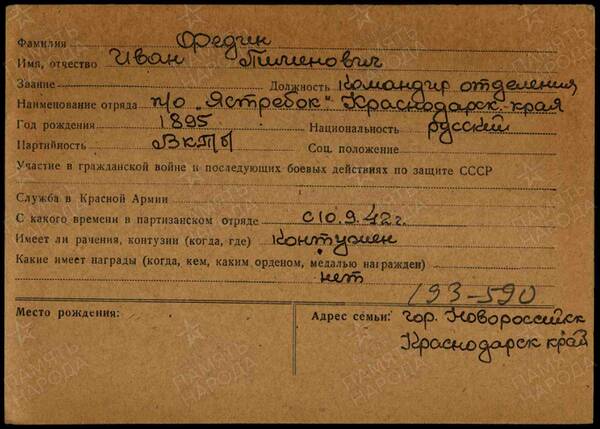 Фамилия Федин
Имя, отчество Иван Пименович
Звание Должность Командир отделения
Наименование отряда п/о „Ястребок" Краснодарск. края
Год рождения 1895 Национальность русский
Партийность ВКПб Соц. положение
Участие в гражданской войне и последующих боевых действиях по защите СССР
Служба в Красной Армии
С какого времени в партизанском отряде с 10.9.42 г.
Имеет ли рачения, контузии (когда, где) контужен
Какие имеет награды (когда, кем, каким орденом, медалью награжден)
нет
193-590
Место рождения: Адрес семьи: гор. Новороссийск
Краснодарск край
ПАМЯТЬ НАРОДА